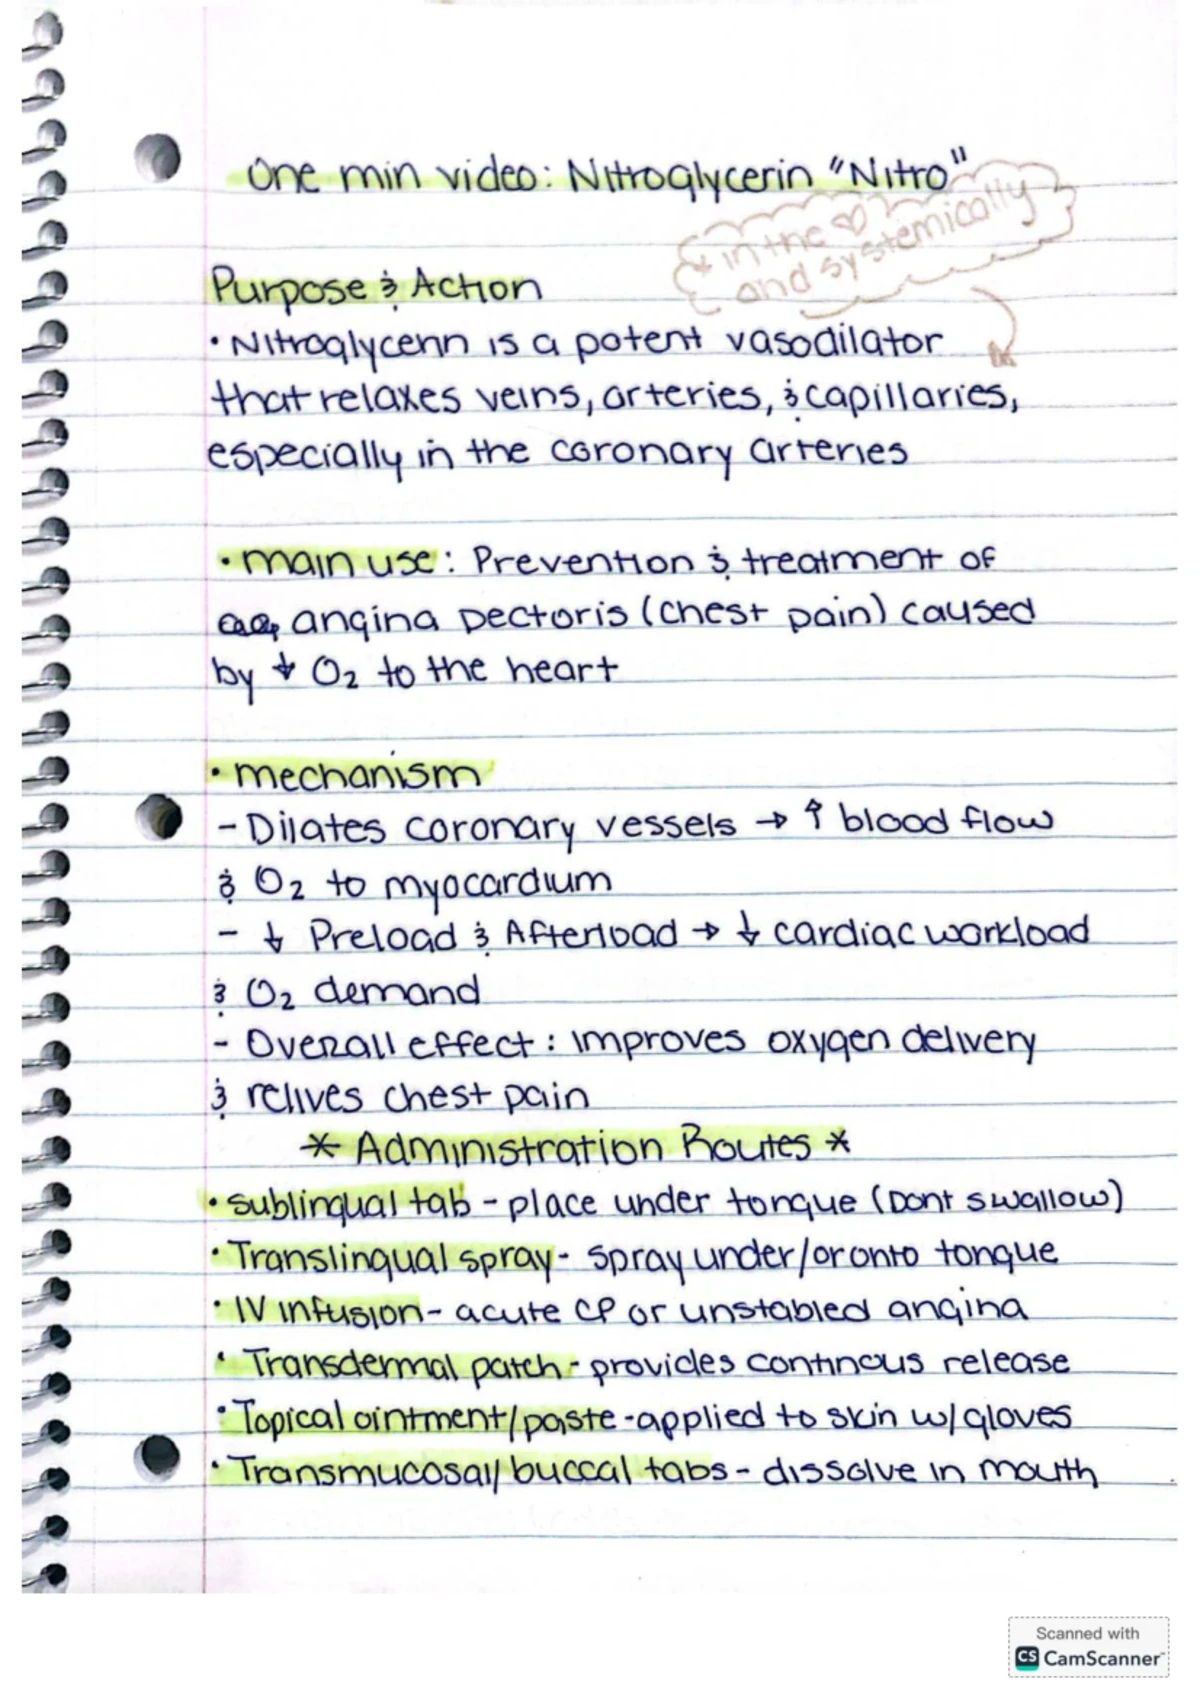 One min video: Nitroglycerin "Nitro"
* in the ♡
and systemically
Purpose & Action
• Nitroglycerin is a potent vasodilator
that relaxes veins, arteries, & capillaries,
especially in the coronary arteries
• main use: Prevention & treatment of
angina pectoris (chest pain) caused
by ↓ O₂ to the heart
• mechanism
- Dilates coronary vessels → ↑ blood flow
& O₂ to myocardium
- ↓ Preload & Afterload → ↓ cardiac workload
& O₂ demand
- Overall effect: improves oxygen delivery
& relives chest pain
* Administration Routes *
• sublingual tab - place under tongue (Dont swallow)
• Translingual spray - spray under/or onto tongue
• IV infusion - acute CP or unstabled angina
• Transdermal patch - provides continous release
• Topical ointment/paste - applied to skin w/ gloves
• Transmucosal/ buccal tabs - dissolve in mouth
Scanned with
CS CamScanner